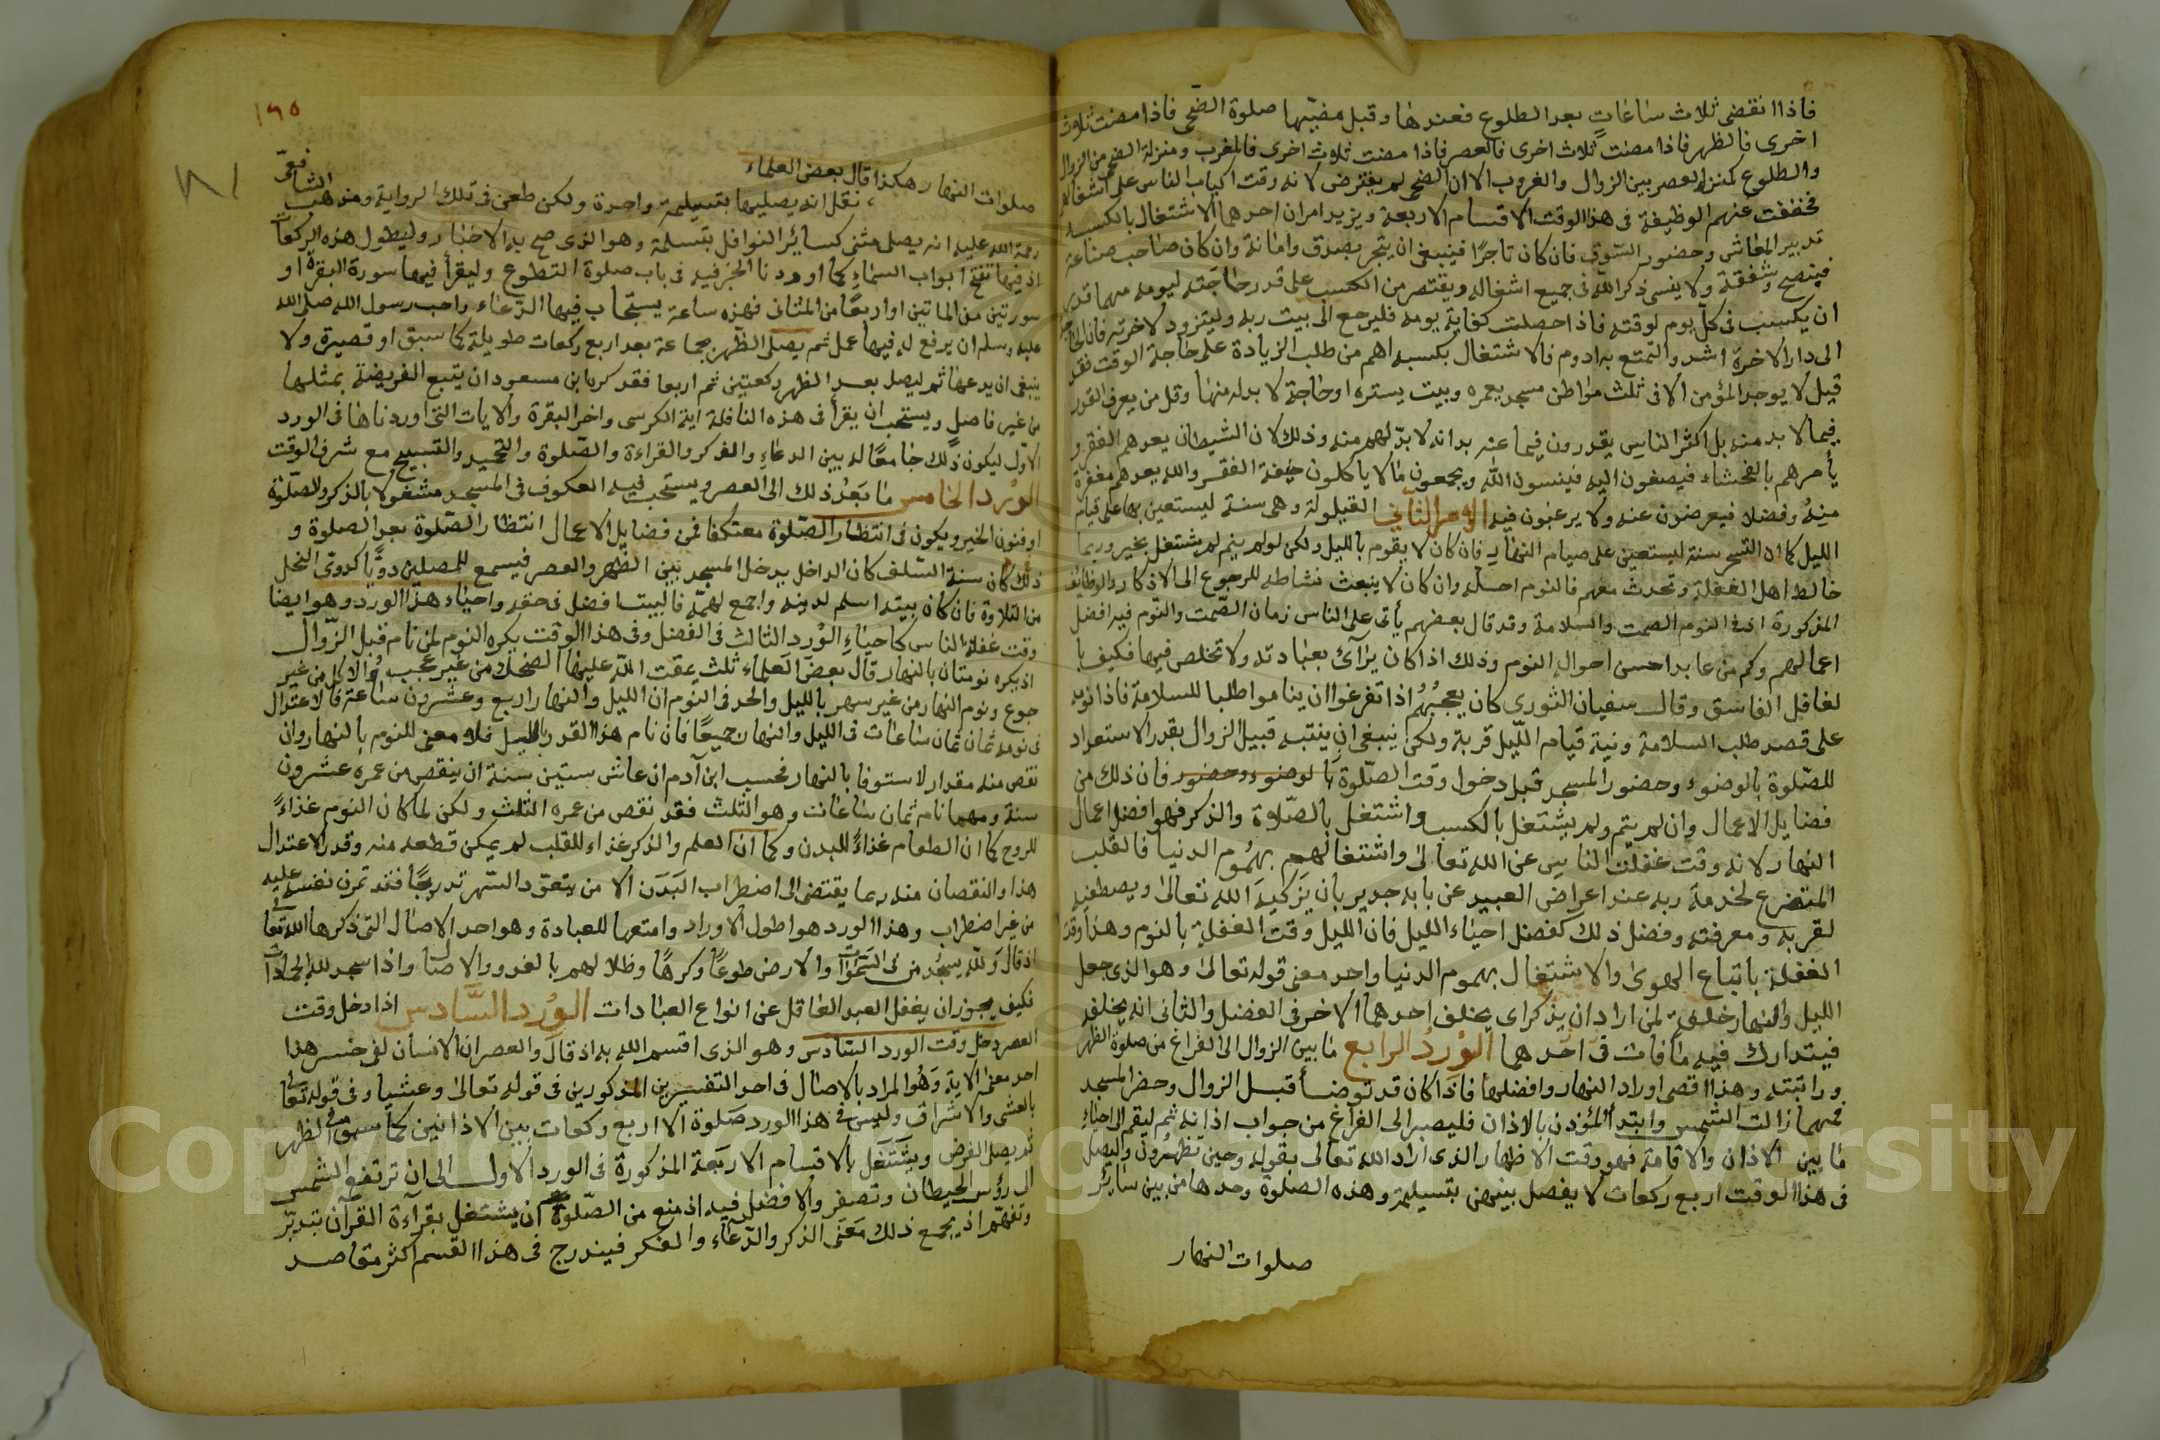 فاذا انقضى ثلاث ساعات بعد الطلوع فعندها وقبل مضيّها صلوة الضحى فاذا مضت ثلاث
اخرى فالظهر فاذا مضت ثلاث اخرى فالعصر فاذا مضت ثلاث اخرى فالمغرب ومنزلة الضحى من الزوال
والطلوع كمنزلة العصر بين الزوال والغروب الا ان الضحى لم يفترض لانه وقت اكباب الناس على اشغالهم
فخففت عنهم الوظيفة فى هذا الوقت الاقسام الاربعة ويزيد امران احدهما الاشتغال بالكسب
تدبير المعاش وحضور السوق فان كان تاجرًا فينبغى ان يتجر بصدق وامانة وان كان صاحب صناعة
فبنصح وشفقة ولا ينسى ذكر الله فى جميع اشغاله ويقتصر من الكسب على قدر حاجته ليومه مهما قدر
ان يكتسب فى كل يوم لوقته فاذا حصلت كفاية يومه فليرجع الى بيت ربه وليتزود لاخرته فان الحاجة
الى دار الاخرة اشد والتمتع به ادوم فالاشتغال بكسبه اهم من طلب الزيادة على حاجة الوقت فقد
قيل لا يوجد المؤمن الا فى ثلث مواطن مسجد يعمره وبيت يستره او حاجة لا بد له منها وقل من يعرف القدر
فيما لا بد منه بل اكثر الناس يقدرون فيما عنه بد انه لا بدّ لهم منه وذلك لان الشيطان يعدهم الفقر و
يأمرهم بالفحشاء فيصغون اليه فينسون الله ويجمعون ما لا ياكلون خيفة الفقر والله يعدهم مغفرة
منه وفضلا فيعرضون عنه ولا يرغبون فيه الامر الثانى القيلولة وهى سنة ليستعين بها على قيام
الليل كما ان التسحر سنة ليستعين على صيام النهار فان كان لا يقوم بالليل ولكن لو لم ينم لم يشتغل بخير وربما
خالط اهل الغفلة وتحدث معهم فالنوم احب له وان كان لا ينبعث نشاطه للرجوع الى الاذكار والوظائف
المذكورة اذ فى النوم الصمت والسلامة وقد قال بعضهم يأتى على الناس زمان الصّمت والنّوم فيه افضل
اعمالهم وكم من عابد احسن احواله النوم وذلك اذا كان يرآئى بعبادته ولا تخلص فيها فكيف با
لغافل الفاسق وقال سفيان الثورى كان يعجبهم اذا تفرغوا ان يناموا طلبا للسلامة فاذا نومه
على قصد طلب السلامة ونية قيام اللّيل قربة ولكن ينبغى ان ينتبه قبيل الزوال بقدر الاستعداد
للصّلوة بالوضوء وحضور المسجد قبل دخول وقت الصّلوة بالوضوء وحضور فان ذلك من
فضايل الاعمال وان لم ينم ولم يشتغل بالكسب واشتغل بالصّلاة والذكر فهو افضل اعمال
النهار لانه وقت غفلة الناس عن الله تعالى واشتغالهم بهموم الدنيا فالقلب
المتضرع لخدمة ربه عند اعراض العبيد عن بابه جدير بان يزكيه الله تعالى ويصطفيه
لقربه ومعرفته وفضل ذلك كفضل احياء الليل فان الليل وقت الغفلة بالنوم وهذا وقت
الغفلة باتباع الهوى والاشتغال بهموم الدنيا واحد معنى قوله تعالى وهو الذى جعل
الليل والنهار خلفة لمن اراد ان يذكر اى يخلف احدهما الاخر فى الفضل والثانى انه يخلفه
فيتدارك فيه ما فات فى احدهما الورد الرابع ما بين الزوال الى الفراغ من صلوة الظهر
وراتبته وهذا اقصر اوراد النهار وافضلها فاذا كان قد توضأ قبل الزوال وحضر المسجد
فمهما زالت الشمس وابتدأ المؤذن بالاذان فليصبر الى الفراغ من جواب اذانه ثم ليقم الى احياء
ما بين الاذان والاقامة فهو وقت الاظهار الذى اراد الله تعالى بقوله وحين تظهرون وليصل
فى هذا الوقت اربع ركعات لا يفصل بينهن بتسليمة وهذه الصلوة وحدها من بين سائر
صلوات النهار
١٦٥
صلوات النهار هكذا قال بعض العلماء
نقل انه يصليها بتسليمة واحدة ولكن طعن فى تلك الرواية ومذهب الشافعى
رحمة الله عليه انه يصلى مثنى كسائر النوافل بتسلمة وهو الذى صح به الاخبار وليطول هذه الركعات
اذ فيها تفتح ابواب السماء كما اوردنا الخبر فيه فى باب صلوة التطوع وليقرأ فيها سورة البقرة او
سورتين من المائتين او اربعًا من المثانى فهذه ساعة يستجاب فيها الدّعاء واحب رسول الله صلى الله
عليه وسلم ان يرفع له فيها عمل ثم يصلى الظّهر بجماعة بعد اربع ركعات طويلة كما سبق او قصيرة ولا
ينبغى ان يدعها ثم ليصل بعد الظهر ركعتين ثم اربعا فقد كره ابن مسعود ان يتبع الفريضة بمثلها
من غير فاصل ويستحب ان يقرأ فى هذه النافلة اية الكرسى واخر البقرة والايات التى اوردناها فى الورد
الاوّل ليكون ذلك جامعًا له بين الدعاء والذكر والقراءة والصّلوة والتحميد والتسبيح مع شرف الوقت
الورد الخامس ما بعد ذلك الى العصر ويستحب فيه العكوف فى المسجد مشغولا بالذكر والصّلوة
او فنون الخير ويكون فى انتظار الصّلوة معتكفا فمن فضايل الاعمال انتظار الصّلوة بعد الصلوة و
ذلك كان سنة السّلف كان الداخل يدخل المسجد بين الظّهر والعصر فيسمع للمصلين دويًّا كدوىّ النحل
من التلاوة فان كان بيته اسلم لدينه واجمع لهمّه فالبيت افضل فى حقه واحياء هذا الورد وهو ايضا
وقت غفلة الناس كاحياء الورد الثالث فى الفضل وفى هذا الوقت يكره النوم لمن نام قبل الزّوال
اذ يكره نومتان بالنهار قال بعض العلماء ثلث يمقت الله عليها الضحك من غير عجب والاكل من غير
جوع ونوم النهار من غير سهر بالليل والحد فى النوم ان الليل والنهار اربع وعشرون ساعة فالاعتدال
فى نومه ثمان ثمان ساعات فى اللّيل والنهار جميعًا فان نام هذا القدر بالليل فلا معنى للنوم بالنهار وان
نقص منه مقدار لاستوفا بالنهار فحسب ابن آدم ان عاش ستين سنة ان ينقص من عمره عشرون
سنة ومهما نام ثمان ساعات وهو الثلث فقد نقص من عمره الثلث ولكن لما كان النوم غذاءً
للروح كما ان الطعام غذاءً للبدن وكما ان العلم والذكر غذاء للقلب لم يمكن قطعه منه وقدر الاعتدال
هذا والنقصان منه ربما يقتضى الى اضطراب البدن الا من يتعوّد السّهر تدريجًا فقد تمرن نفسه عليه
من غير اضطراب وهذا الورد هو اطول الاوراد وامتعها للعبادة وهو احد الاصال التى ذكرها الله تعالى فى
اذ قال ولله يسجد من فى السموات والارض طوعًا وكرهًا وظلالهم بالغدو والاصال واذا سجد لله الجمادات
فكيف يجوز ان يغفل العبد العاقل عن انواع العبادات الورد السّادس اذا دخل وقت
العصر دخل وقت الورد السّادس وهو الذى اقسم الله به اذ قال والعصر ان الانسان لفى خسر هذا
احد معنى الاية وهو المراد بالاصال فى احد التفسيرين المذكورين فى قوله تعالى وعشيا وفى قوله تعالى
بالعشى والاشراق وليس فى هذا الورد صلوة الا اربع ركعات بين الاذانين كما سبق فى الظهر
ثم يصلى الفرض ويشتغل بالاقسام الاربعة المذكورة فى الورد الاول الى ان ترتفع الشمس
الى رؤس الحيطان وتصفر والافضل فيه اذ منع من الصّلوة ان يشتغل بقرآءة القرآن بتدبّر
وتفهّم اذ يجمع ذلك معنى الذكر والدّعاء والفكر فيندرج فى هذا القسم اكثر مقاصد
Copyright © King Saud University